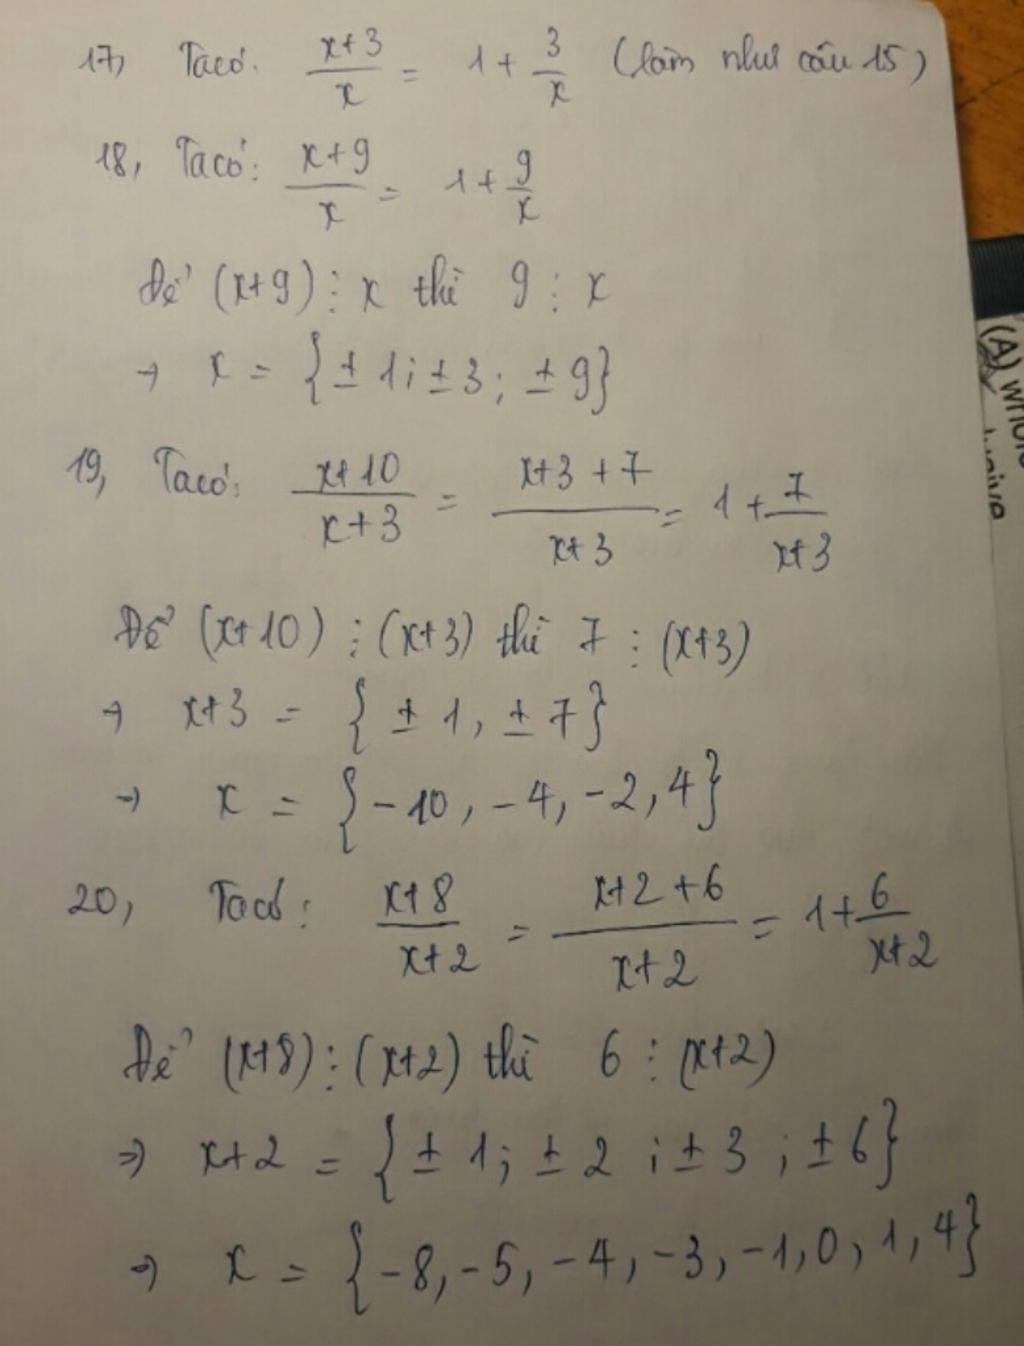 17, Ta có: x+3/x = 1 + 3/x (làm như câu 15)
18, Ta có: x+9/x = 1 + 9/x
Để (x+9) ⋮ x thì 9 ⋮ x
→ x = {± 1; ± 3; ± 9}
19, Ta có: x+10/x+3 = x+3+7/x+3 = 1 + 7/x+3
Để (x+10) ⋮ (x+3) thì 7 ⋮ (x+3)
→ x+3 = {± 1, ± 7}
→ x = {-10, -4, -2, 4}
20, Ta có: x+8/x+2 = x+2+6/x+2 = 1 + 6/x+2
Để (x+8) ⋮ (x+2) thì 6 ⋮ (x+2)
⇒ x+2 = {± 1; ± 2; ± 3; ± 6}
→ x = {-8, -5, -4, -3, -1, 0, 1, 4}
(A)